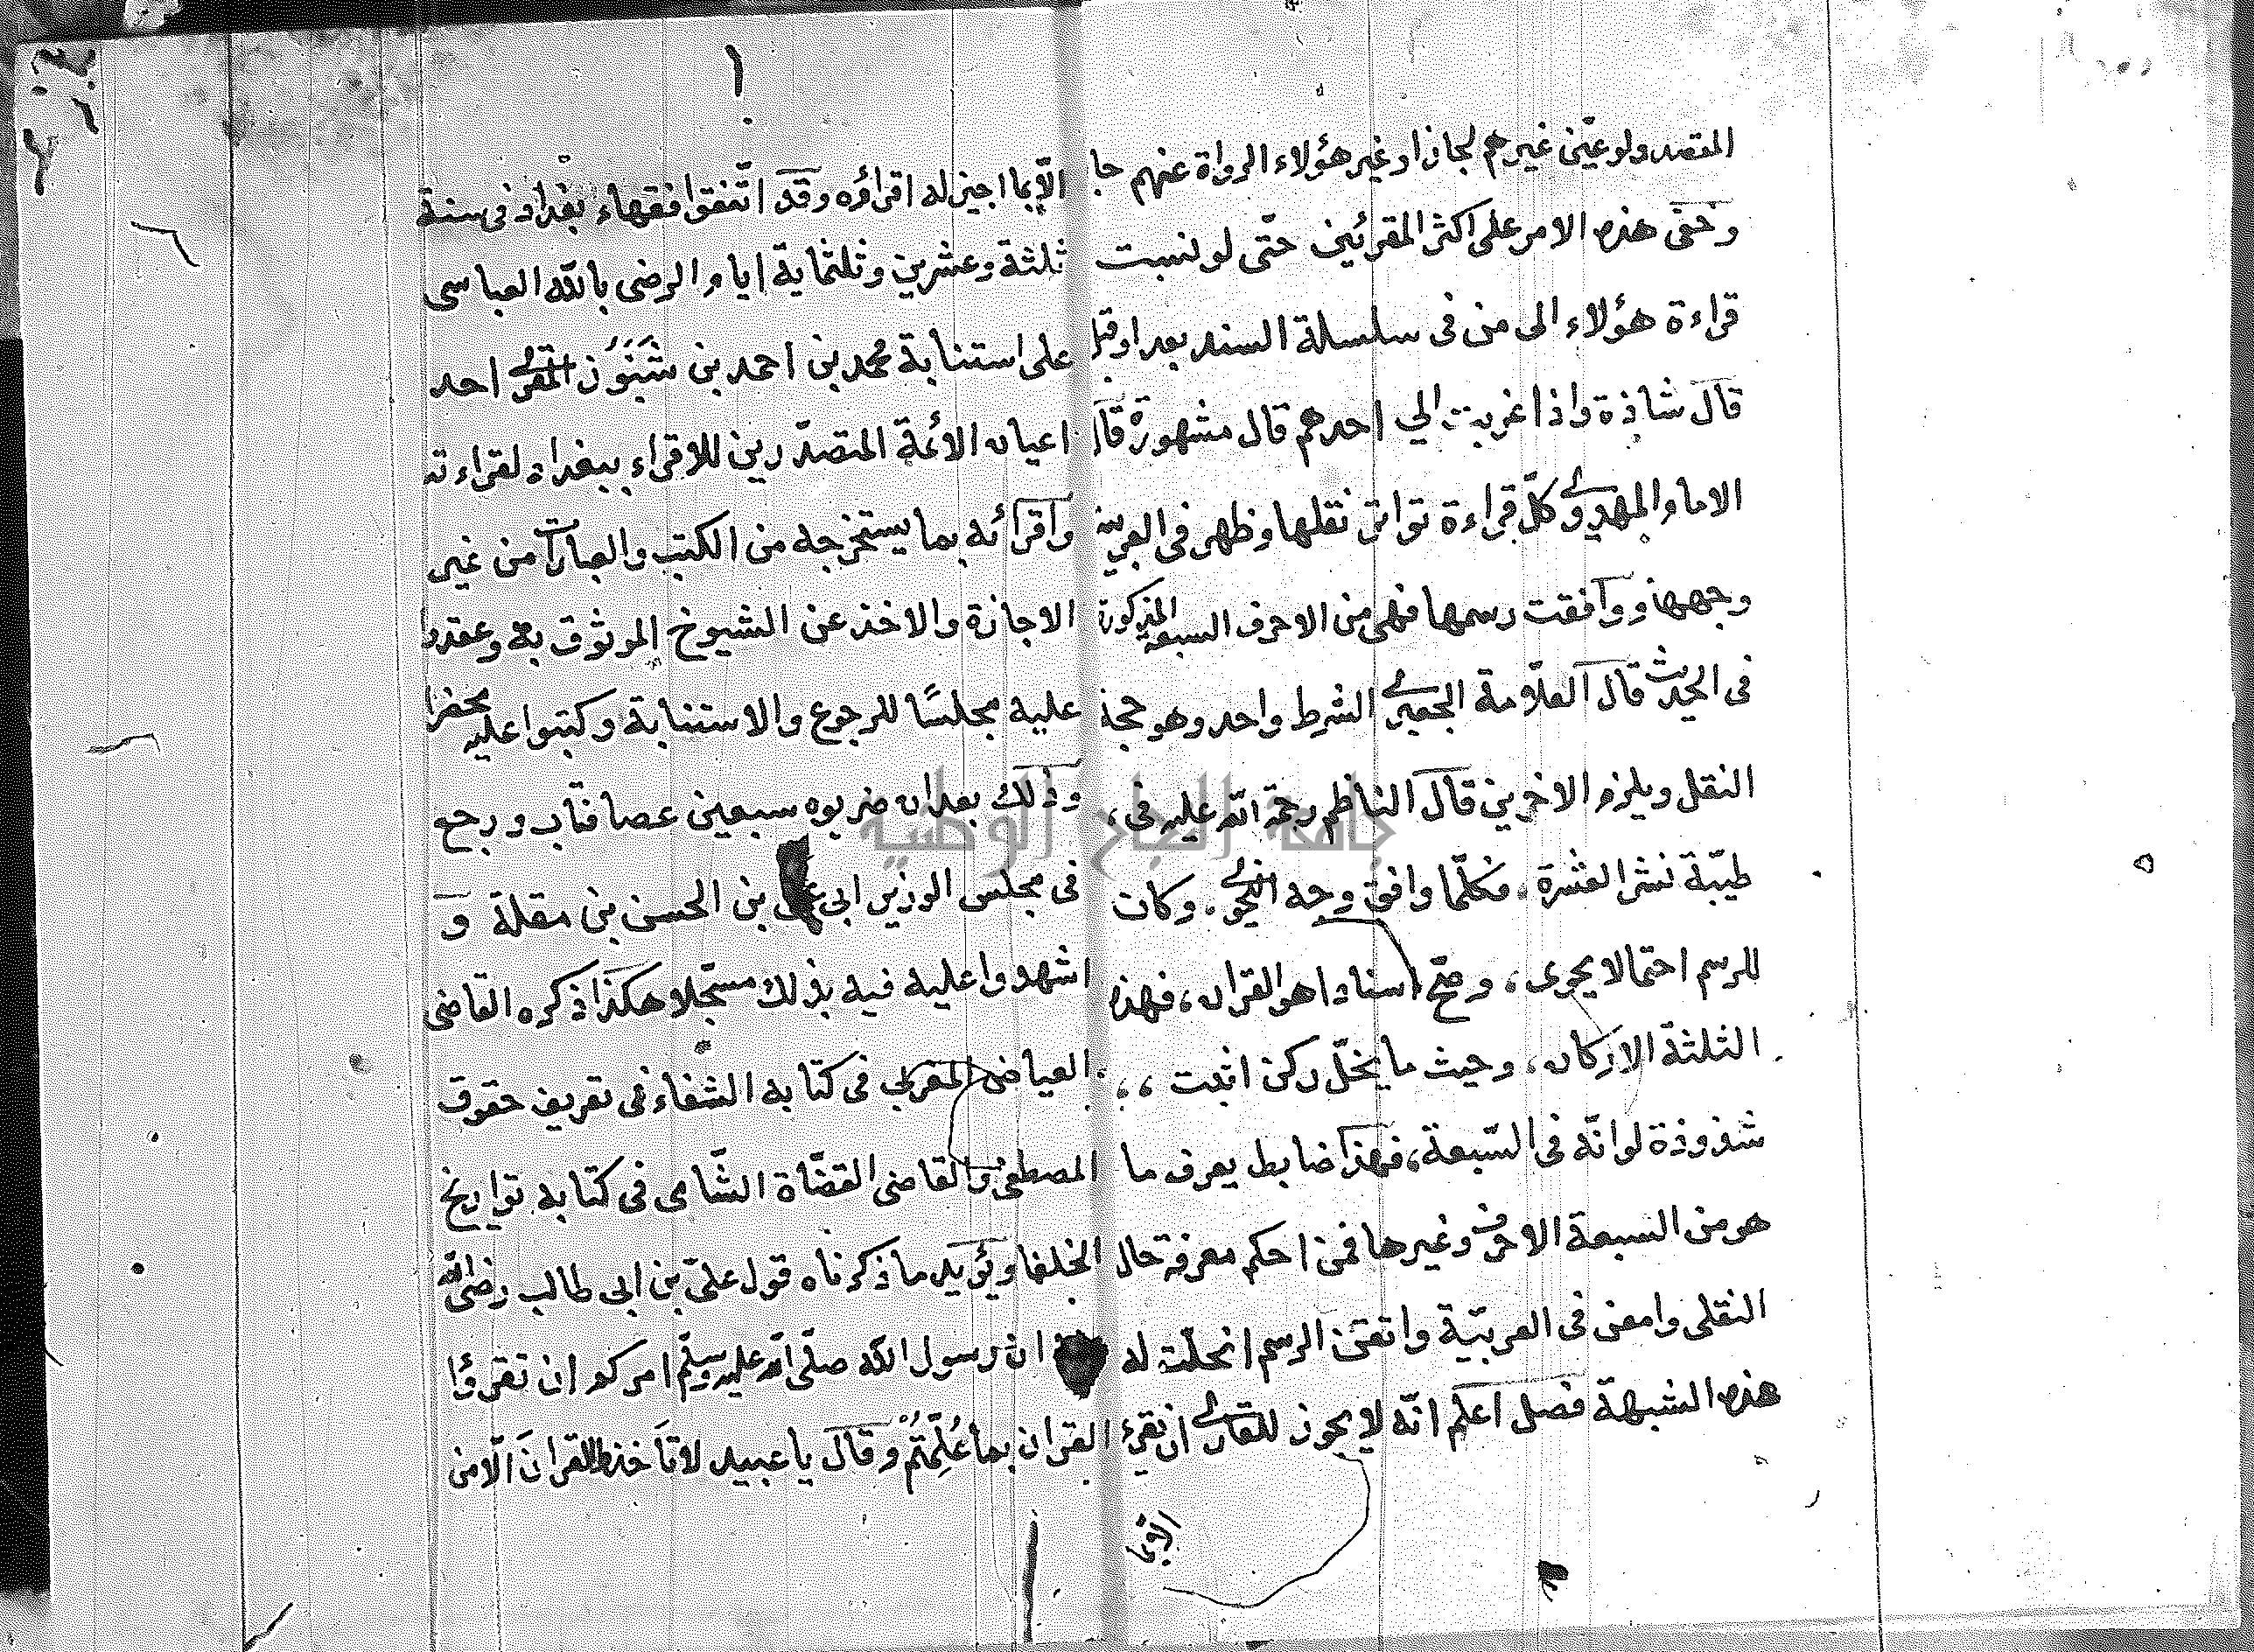 المتصد ولو عيّن غيرهم لجاز او غير هؤلاء الرواة عنهم جا
وخفى هذه الامر على اكثر المقرئين حتّى لو نسبت
قراءة هؤلاء الى من فى سلسلة السند بعد او قبل
قال شاذة واذا غريت الى احدهم قال مشهورة قال
الامام المهدوى كلّ قراءة تواتر نقلها وظهر فى العربية
وجهها ووافقت رسمها فهى من الاحرف السبعة المذكورة
فى الحديث قال العلّامة الجعبرى الشرط واحد وهو حجة
النقل ويلزم الاخرين قال الناظم رحمة الله عليه فى ،
طيّبة نشر العشرة ، فكلّما وافق وجه النحوى . وكان
للرسم احتمالا يحوى ، وصحّ اسنادا هو القران ، فهذه
الثلثة الاركان ، وحيث ما يختلّ ركن اثبت ، ،
شذوذة لو انّه فى السّبعة ، فهذا ضابط يعرف ما
هو من السبعة الاحرف وغيرها فمن احكم معرفة حال
النقلى وامعن فى العربيّة واتقن الرسم انحلّت له
هذه الشبهة فصل اعلم انّه لا يجوز للقارى ان نقرئ
الّا بما
١
الّا بما اجيز له اقراؤه وقد اتّفقوا فقهاء بغداد فى سنة
ثلثة وعشرين وثلثماية ايام الرضى بالله العباسى
على استنابة محمد بن احمد بن شَنَبُوذ المقرى احد
اعيان الائمّة المتصدّرين للاقراء ببغداد لقراءته
واقرائه بما يستخرجه من الكتب والعبارات من غير
الاجازة والاخذ عن الشيوخ الموثوق به وعقدوا
عليه مجلسًا للرجوع والاستنابة وكتبوا عليه محضرا
وذلك بعد ان ضربوه سبعين عصا فتاب ورجع
فى مجلس الوزير ابى على بن الحسن بن مقلة و
اشهدوا عليه فيه بذلك مسجّلا هكذا ذكره القاضى
العياض المغربى فى كتابه الشفاء فى تعريف حقوق
المصطفى والقاضى القضاة الشّامى فى كتابه تواريخ
الخلفا ويؤيد ما ذكرناه قول علىّ بن ابى طالب رضى الله
ان رسول الله صلّى الله عليه وسلّم امركم ان تقرؤا
القران بما عُلِّمتُمْ وقال يا عبيد لا تاخذ القرانَ الّا من